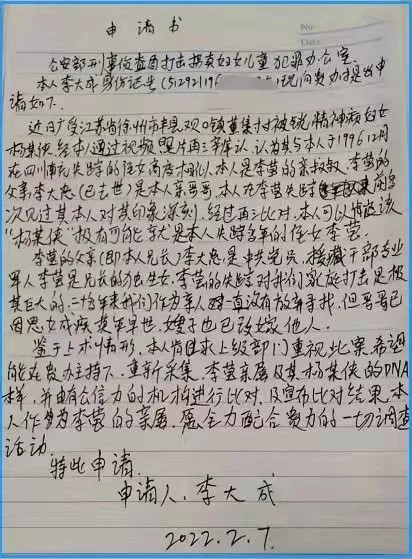 申请书
No.
Date.
公安部刑事侦查局打击拐卖妇女儿童犯罪办公室.
本人李大成身份证号(512921196 现向贵办提出申
请如下.
近日广受江苏省徐州市丰县欢口镇董集村被锁精神病妇女
杨某侠,经本人通过视频、照片再三辨认,认为其与本人于1996.12月
在四川南充失踪的侄女高度相似.本人是李莹的亲叔叔,李莹的
父亲李大忠(已去世)是本人亲哥哥.本人在李莹失踪前多
次见过其本人对其印象深刻.经过再三比对,本人可以肯定该
"杨某侠"极有可能就是本人失踪多年的侄女李莹.
李莹的父亲(即本人兄长)李大忠是中共党员、援藏干部专业
军人李莹是兄长的独生女.李莹的失踪对我们家庭打击是极
其巨大的.二十多年来我们作为亲人一直没有放弃寻找,但哥哥已
因思女成疾英年早世,嫂子也已改嫁他人.
鉴于上术情形,本人肯求上级部门重视此案希望
能在贵办主持下,重新采集、李莹亲属及其杨某侠的DNA
样,并由有公信力的机构进行比对,及宣布比对结果.本
人作为李莹的亲属,愿全力配合贵办的一切调查
活动.
特此申请.
申请人:李大成
2022.2.7.